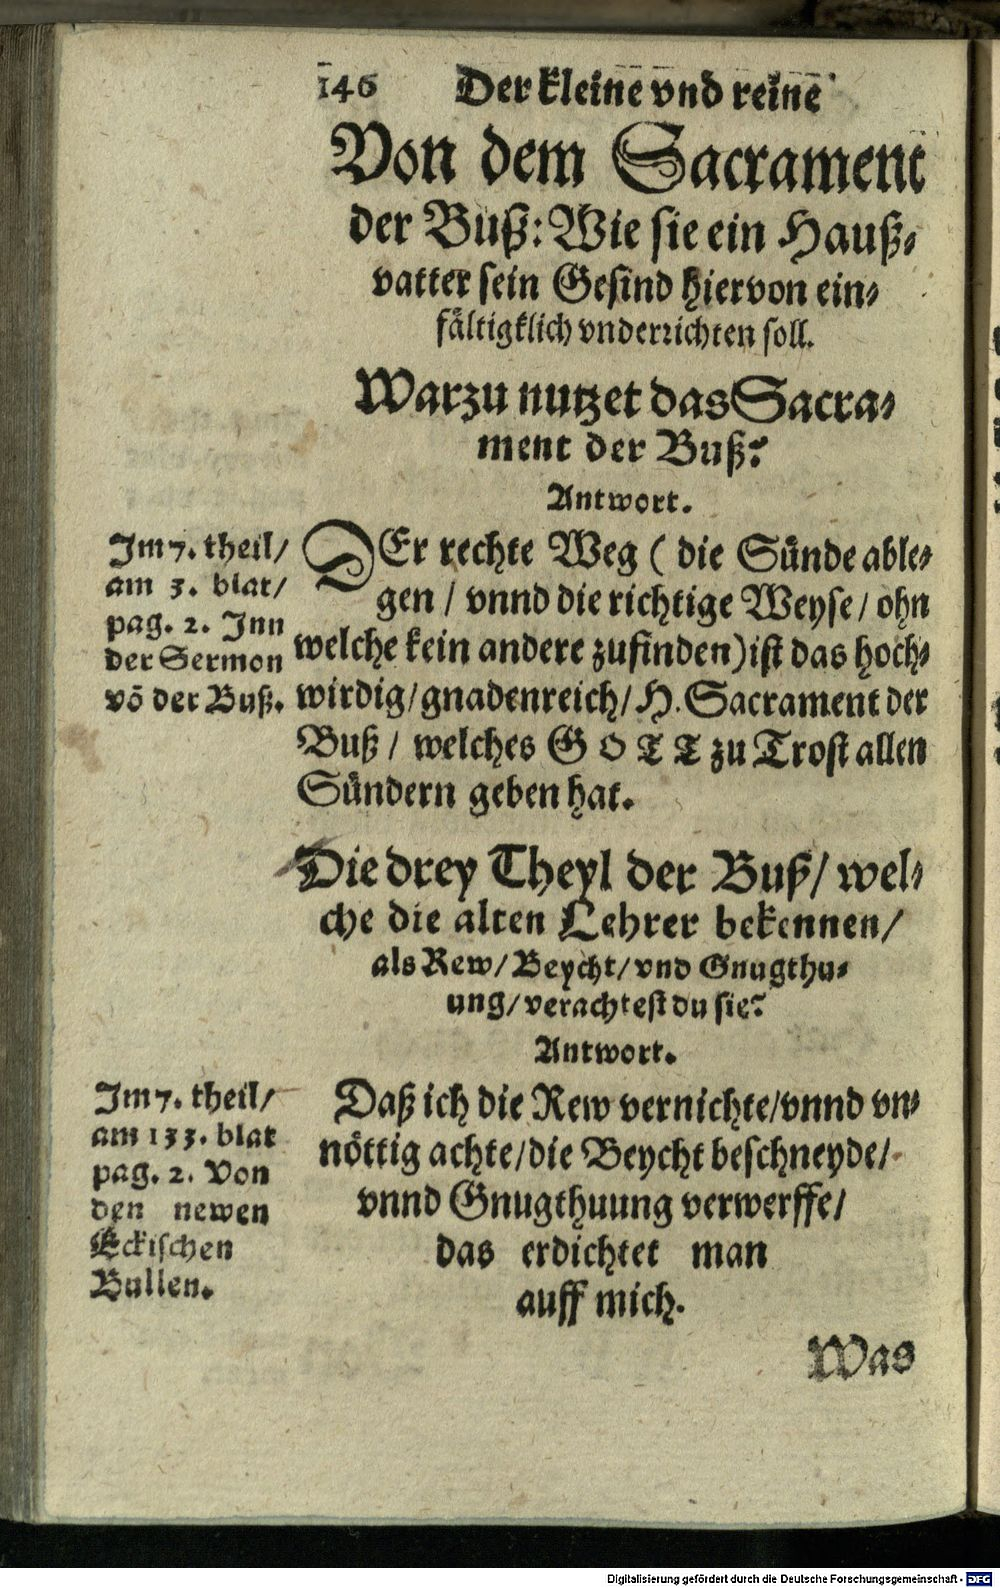 146 Der kleine vnd reine
Von dem Sacrament
der Buß: Wie sie ein Hauß⸗
vatter sein Gesind hiervon ein⸗
fältigklich vnderrichten soll.
Warzu nutzet das Sacra⸗
ment der Buß?
Antwort.
Im 7. theil/
am 3. blat/
pag. 2. Inn
der Sermon
võ der Buß.
DEr rechte Weg ( die Sünde able⸗
gen / vnnd die richtige Weyse / ohn
welche kein andere zufinden) ist das hoch⸗
wirdig/ gnadenreich/ H. Sacrament der
Buß / welches GOTT zu Trost allen
Sündern geben hat.
Die drey Theyl der Buß/ wel⸗
che die alten Lehrer bekennen/
als Rew/ Beycht/ vnd Gnugthu⸗
ung/ verachtest du sie?
Antwort.
Im 7. theil/
am 133. blat
pag. 2. Von
den newen
Eckischen
Bullen.
Daß ich die Rew vernichte/ vnnd vn⸗
nöttig achte/ die Beycht beschneyde/
vnnd Gnugthuung verwerffe/
das erdichtet man
auff mich.
Was
Digitalisierung gefördert durch die Deutsche Forschungsgemeinschaft - DFG